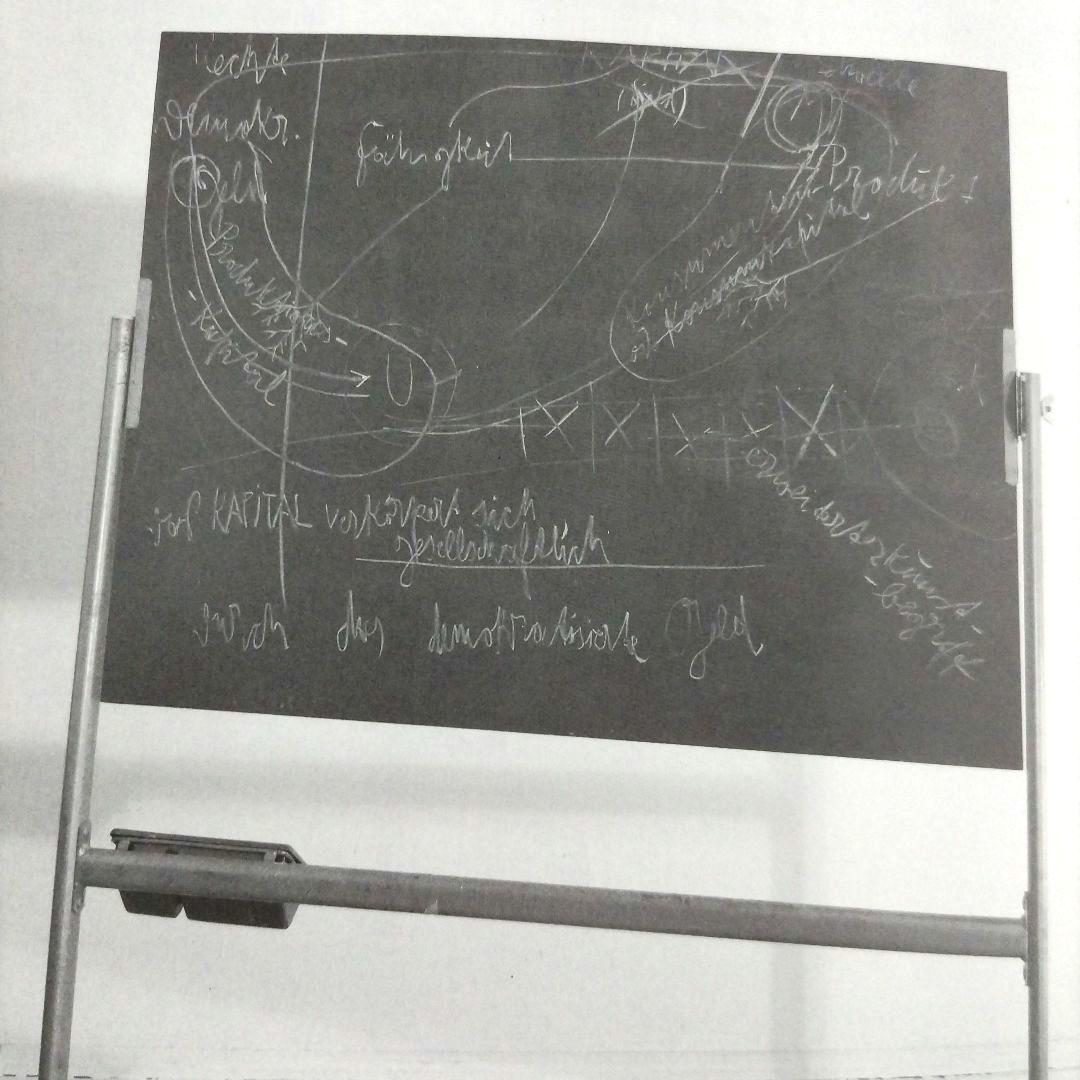 Rechte
KAPITAL
Demokr.
Geld
Fähigkeit
Produkt
Produktions-
Kapital
Konsumkapital
erweiterter Kunst-
begriff
KAPITAL verkörpert sich
gesellschaftlich
durch das demokratisierte Geld